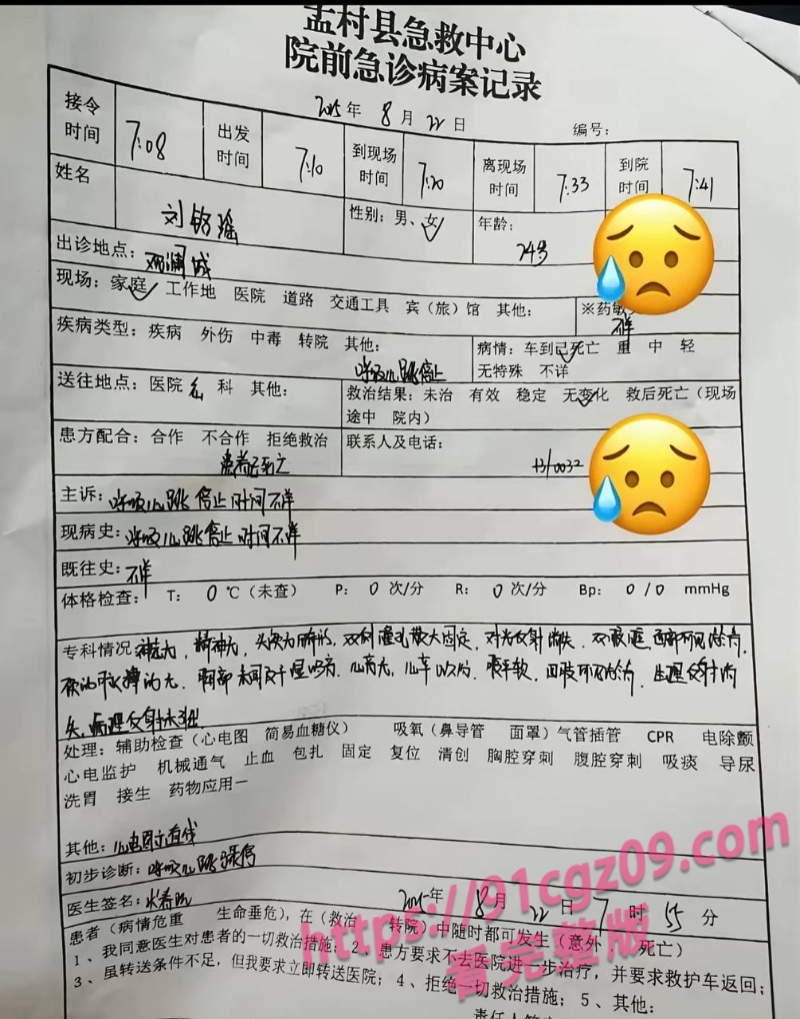 孟村县急救中心
院前急诊病案记录
2025年 8月 22日 编号：
接令时间 7:08 出发时间 7:10 到现场时间 7:20 离现场时间 7:33 到院时间 7:41
姓名 性别：男、女 年龄：
出诊地点：观澜城 24岁
现场：家庭 工作地 医院 道路 交通工具 宾（旅）馆 其他： ※药敏 不详
疾病类型：疾病 外伤 中毒 转院 其他： 呼吸心跳停止 病情：车到已死亡 重 中 轻
无特殊 不详
送往地点：医院 科 其他： 救治结果：未治 有效 稳定 无变化 救后死亡（现场
途中 院内）
患方配合：合作 不合作 拒绝救治 联系人及电话：
患者已死亡
主诉：呼吸心跳停止时间不详
现病史：呼吸心跳停止时间不详
既往史：不详
体格检查： T： 0 ℃（未查） P： 0 次/分 R： 0 次/分 Bp： 0 / 0 mmHg
专科情况 神志无，精神无，头颅无畸形，双侧瞳孔散大固定，对光反射消失，
胸部未闻及干湿啰音，心音无，心率0次/分，腹平软，四肢 生理反射消
失，病理反射未引出
处理：辅助检查（心电图 简易血糖仪） 吸氧（鼻导管 面罩）气管插管 CPR 电除颤
心电监护 机械通气 止血 包扎 固定 复位 清创 胸腔穿刺 腹腔穿刺 吸痰 导尿
洗胃 接生 药物应用一
其他：心电图示直线
初步诊断：呼吸心跳骤停
医生签名： 2025年 8月 22日 7时 55分
患者（病情危重 生命垂危），在（救治 转院）中随时都可发生（意外 死亡）
1、我同意医生对患者的一切救治措施；2、患方要求不去医院进一步治疗，并要求救护车返回；
3、虽转送条件不足，但我要求立即转送医院；4、拒绝一切救治措施；5、其他：
https://91cgz09.com
看完整版